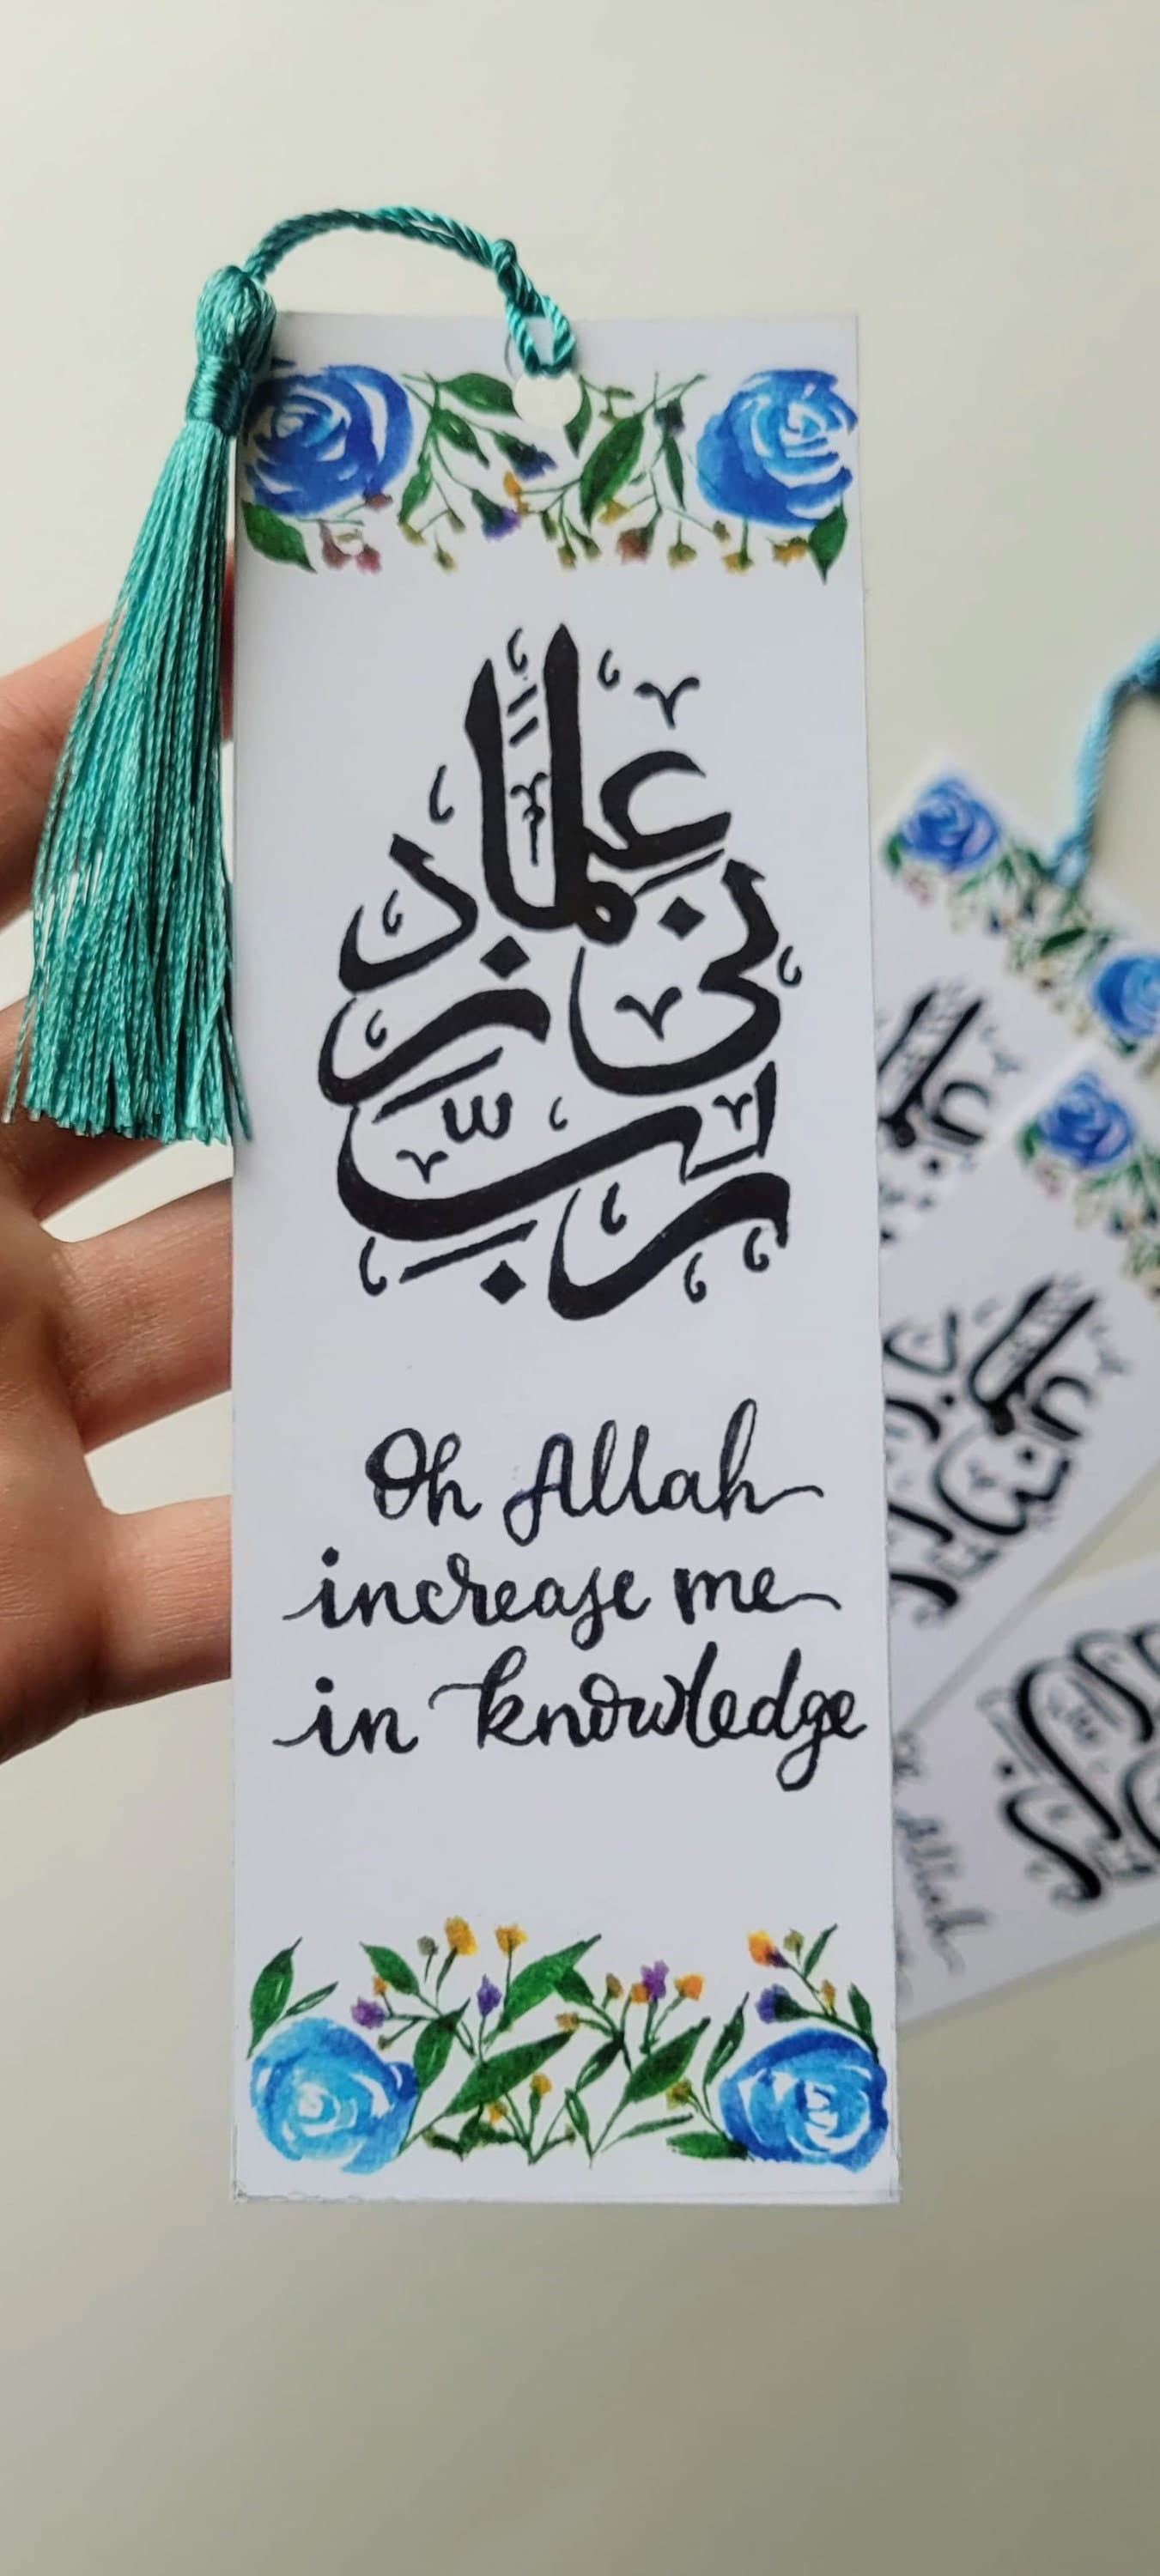 رَبِّ
زِدْنِي
عِلْمًا
Oh Allah
increase me
in knowledge
Allah